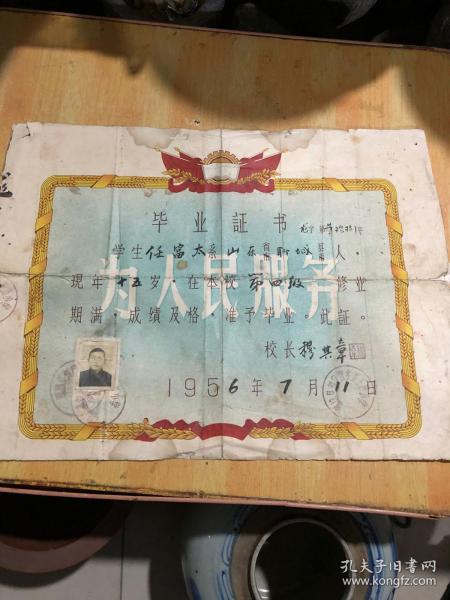 毕业証书
学生任富太系山东省聊城县人，
現年十五岁，在本校第四級修业
期滿，成績及格，准予毕业。此証。
校长穆其章
1956年7月11日
为人民服务
孔夫子旧书网
www.kongfz.com